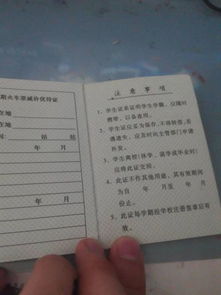 期火车票减价优待证
在地
在地
站 站
年 月
年 月
注意事项
1、学生证系证明学生学籍，应随时
携带，以备查阅。
2、学生证应妥为保存，不得转借，若
遗失，应及时向主管部门申请
补发。
3、学生离校(休学、退学或毕业时)
应将此证交回。
4、此证不作其他用途，其有效期间
为自 年 月至 年 月
份止。
5、此证每学期经学校注册盖章后有
效。